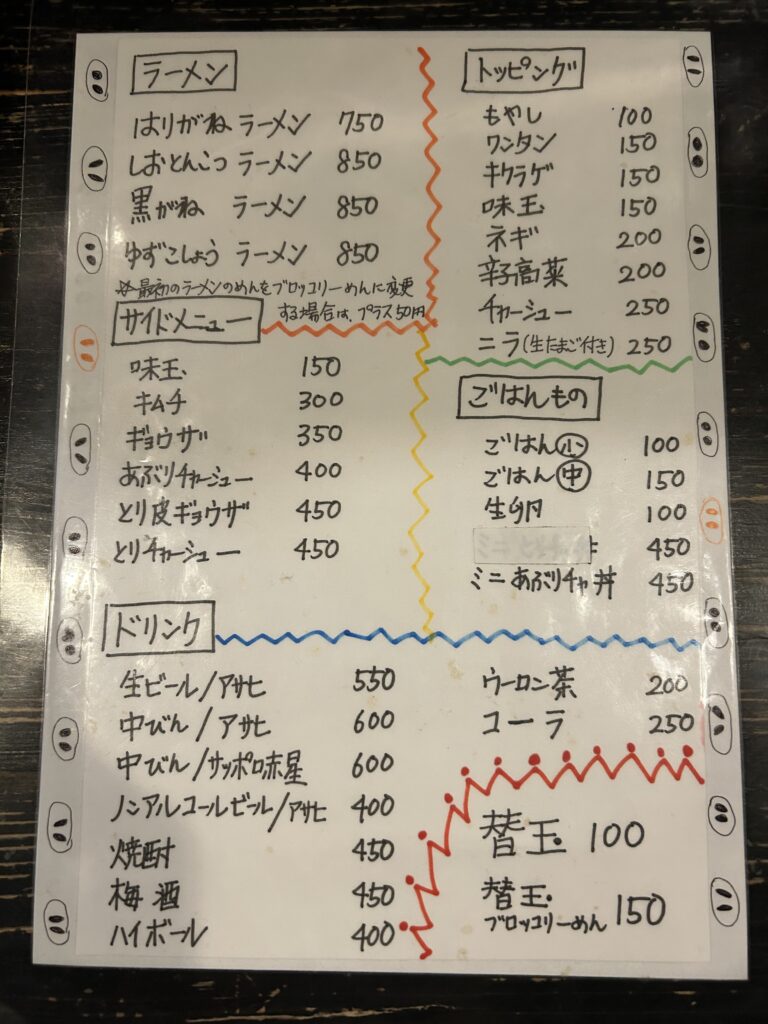 ラーメン
はりがね ラーメン 750
しおとんこつ ラーメン 850
黒がね ラーメン 850
ゆずこしょう ラーメン 850
※最初のラーメンのめんをブロッコリーめんに変更
する場合は、プラス50円
サイドメニュー
味玉 150
キムチ 300
ギョウザ 350
あぶりチャーシュー 400
とり皮ギョウザ 450
とりチャーシュー 450
トッピング
もやし 100
ワンタン 150
キクラゲ 150
味玉 150
ネギ 200
辛子高菜 200
チャーシュー 250
ニラ(生たまご付き) 250
ごはんもの
ごはん小 100
ごはん中 150
生卵 100
450
ミニあぶりチャ丼 450
ドリンク
生ビール/アサヒ 550
中びん/アサヒ 600
中びん/サッポロ赤星 600
ノンアルコールビール/アサヒ 400
焼酎 450
梅酒 450
ハイボール 400
ウーロン茶 200
コーラ 250
替玉 100
替玉
ブロッコリーめん 150